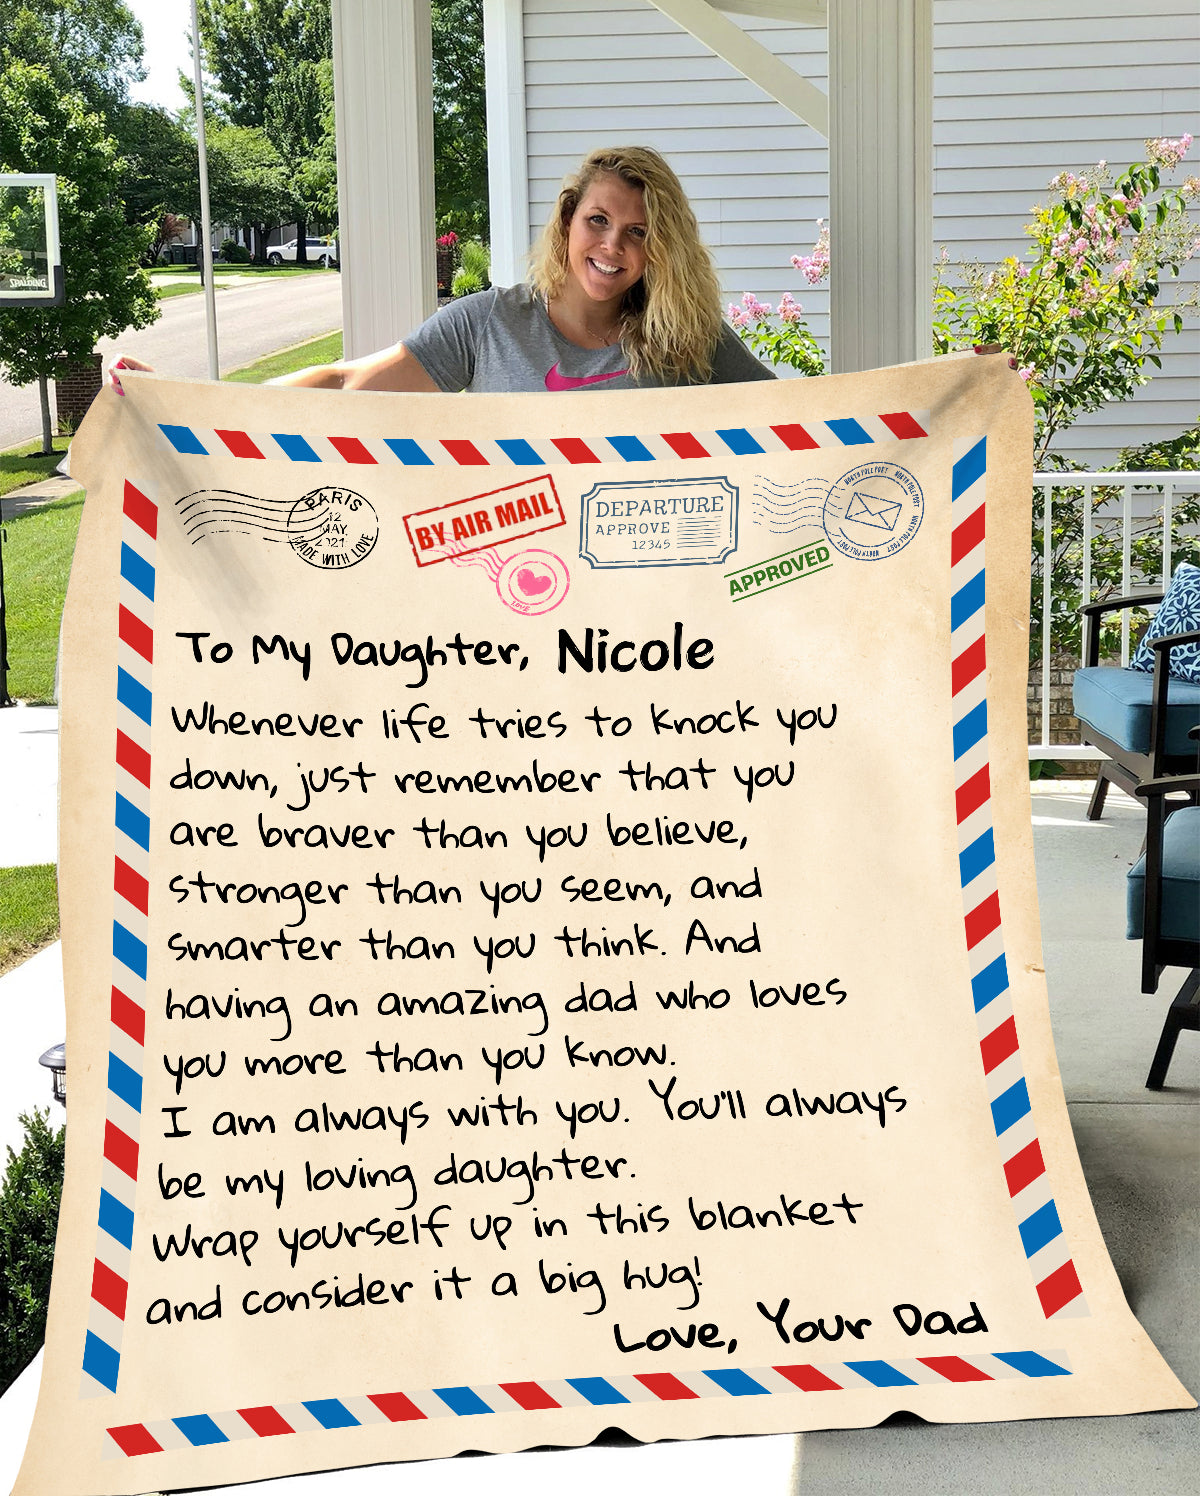 SPALDING
PARIS
12
MAY
2021
MADE WITH LOVE
BY AIR MAIL
LOVE
DEPARTURE
APPROVE
12345
NORTH POLE POST
NORTH POLE POST
NORTH POLE POST
NORTH POLE POST
APPROVED
To My Daughter, Nicole
Whenever life tries to knock you
down, just remember that you
are braver than you believe,
stronger than you seem, and
smarter than you think. And
having an amazing dad who loves
you more than you know.
I am always with you. You'll always
be my loving daughter.
Wrap yourself up in this blanket
and consider it a big hug!
Love, Your Dad